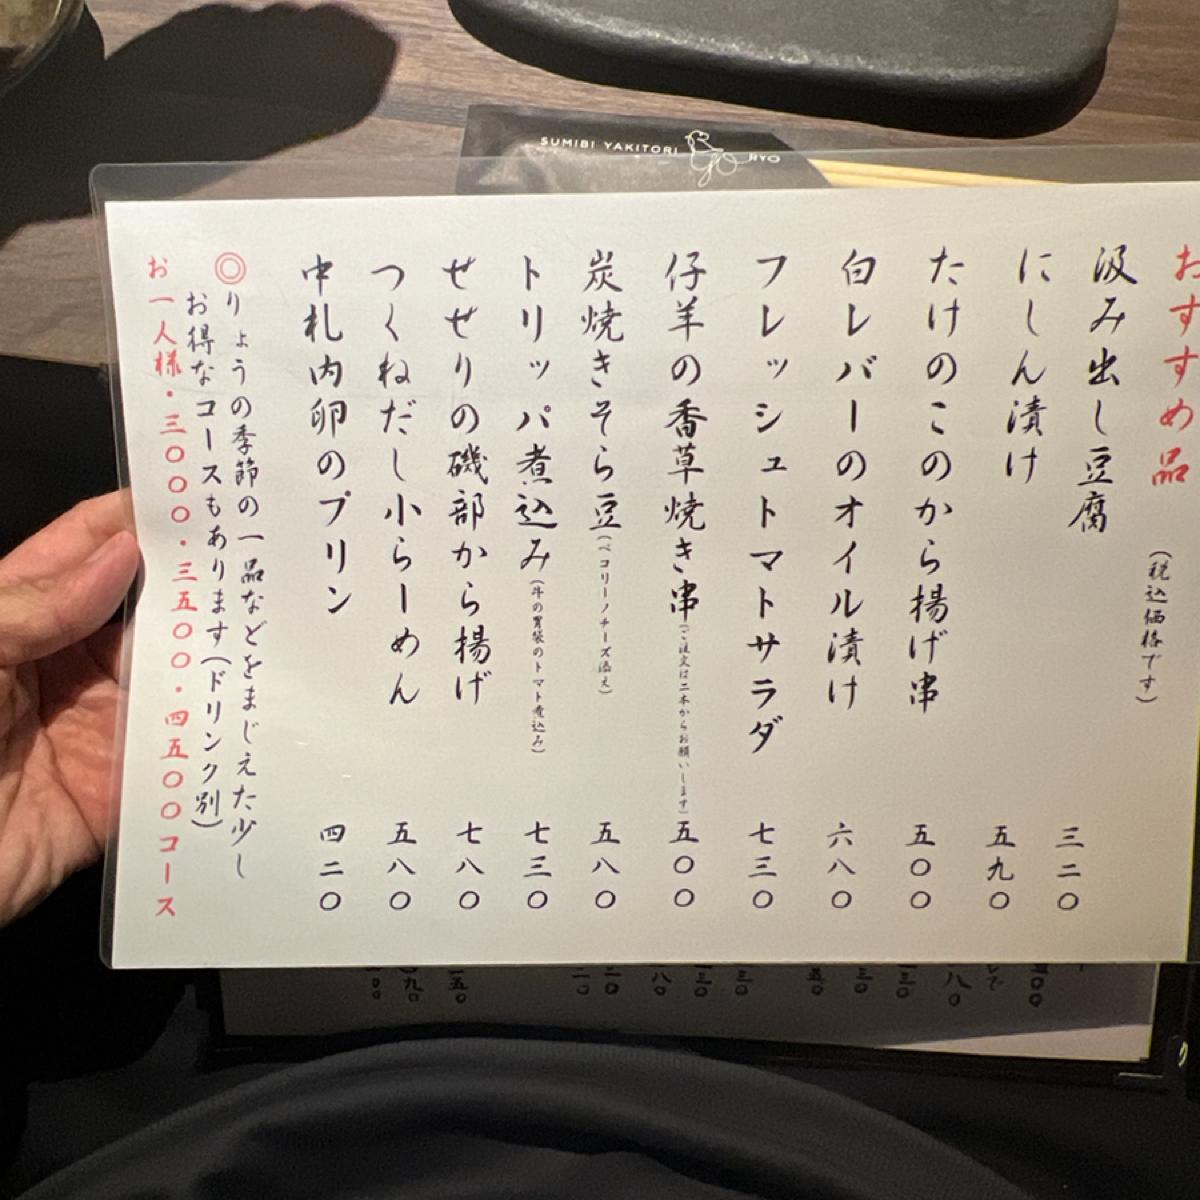 SUMIBI YAKITORI RYO
おすすめ品
(税込価格です)
汲み出し豆腐 三二〇
にしん漬け 五九〇
たけのこのから揚げ串 五〇〇
白レバーのオイル漬け 六八〇
フレッシュトマトサラダ 七三〇
仔羊の香草焼き串(ご注文は二本からお願いします) 五〇〇
炭焼きそら豆(ペコリーノチーズ添え) 五八〇
トリッパ煮込み(牛の胃袋のトマト煮込み) 七三〇
せせりの磯部から揚げ 七八〇
つくねだし小らーめん 五八〇
中札内卵のプリン 四二〇
◎りょうの季節の一品などをまじえた少し
お得なコースもあります(ドリンク別)
お一人様・三〇〇〇・三五〇〇・四五〇〇コース